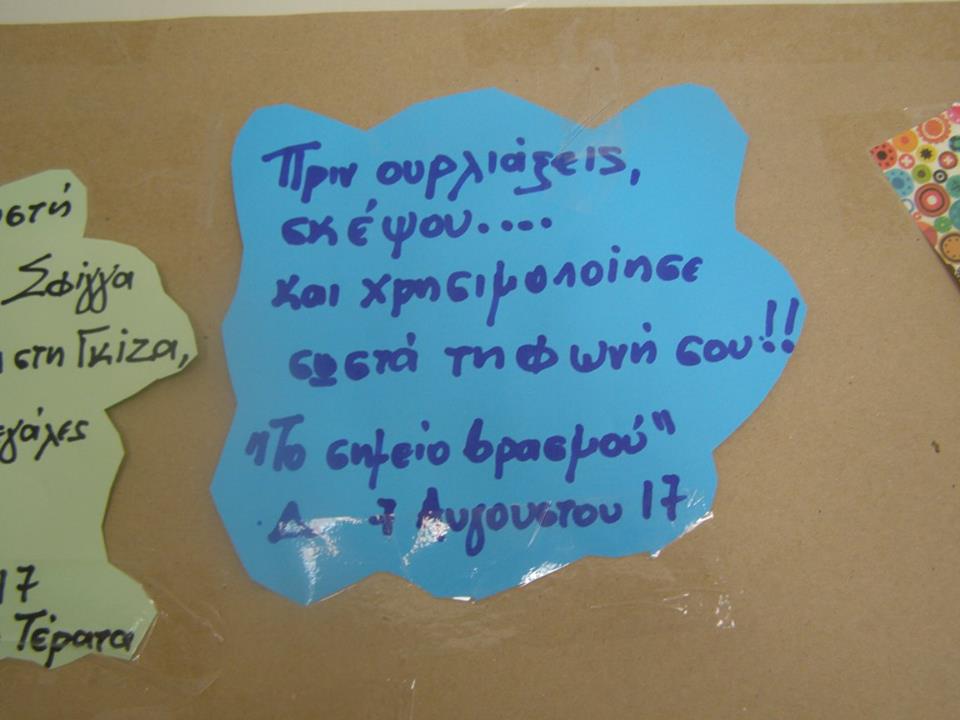 υστή
Σφίγγα
στη Γκίζα,
εγάλες
17
Τέρατα
Πριν ουρλιάξεις,
σκέψου....
και χρησιμοποίησε
σωστά τη φωνή σου!!
"Το σημείο βρασμού"
Δ 7 Αυγουστου 17